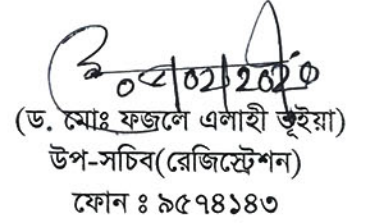 (ড. মোঃ ফজলে এলাহী ভূইয়া)
উপ-সচিব(রেজিস্ট্রেশন)
ফোন ঃ ৯৫৭৪১৪৩